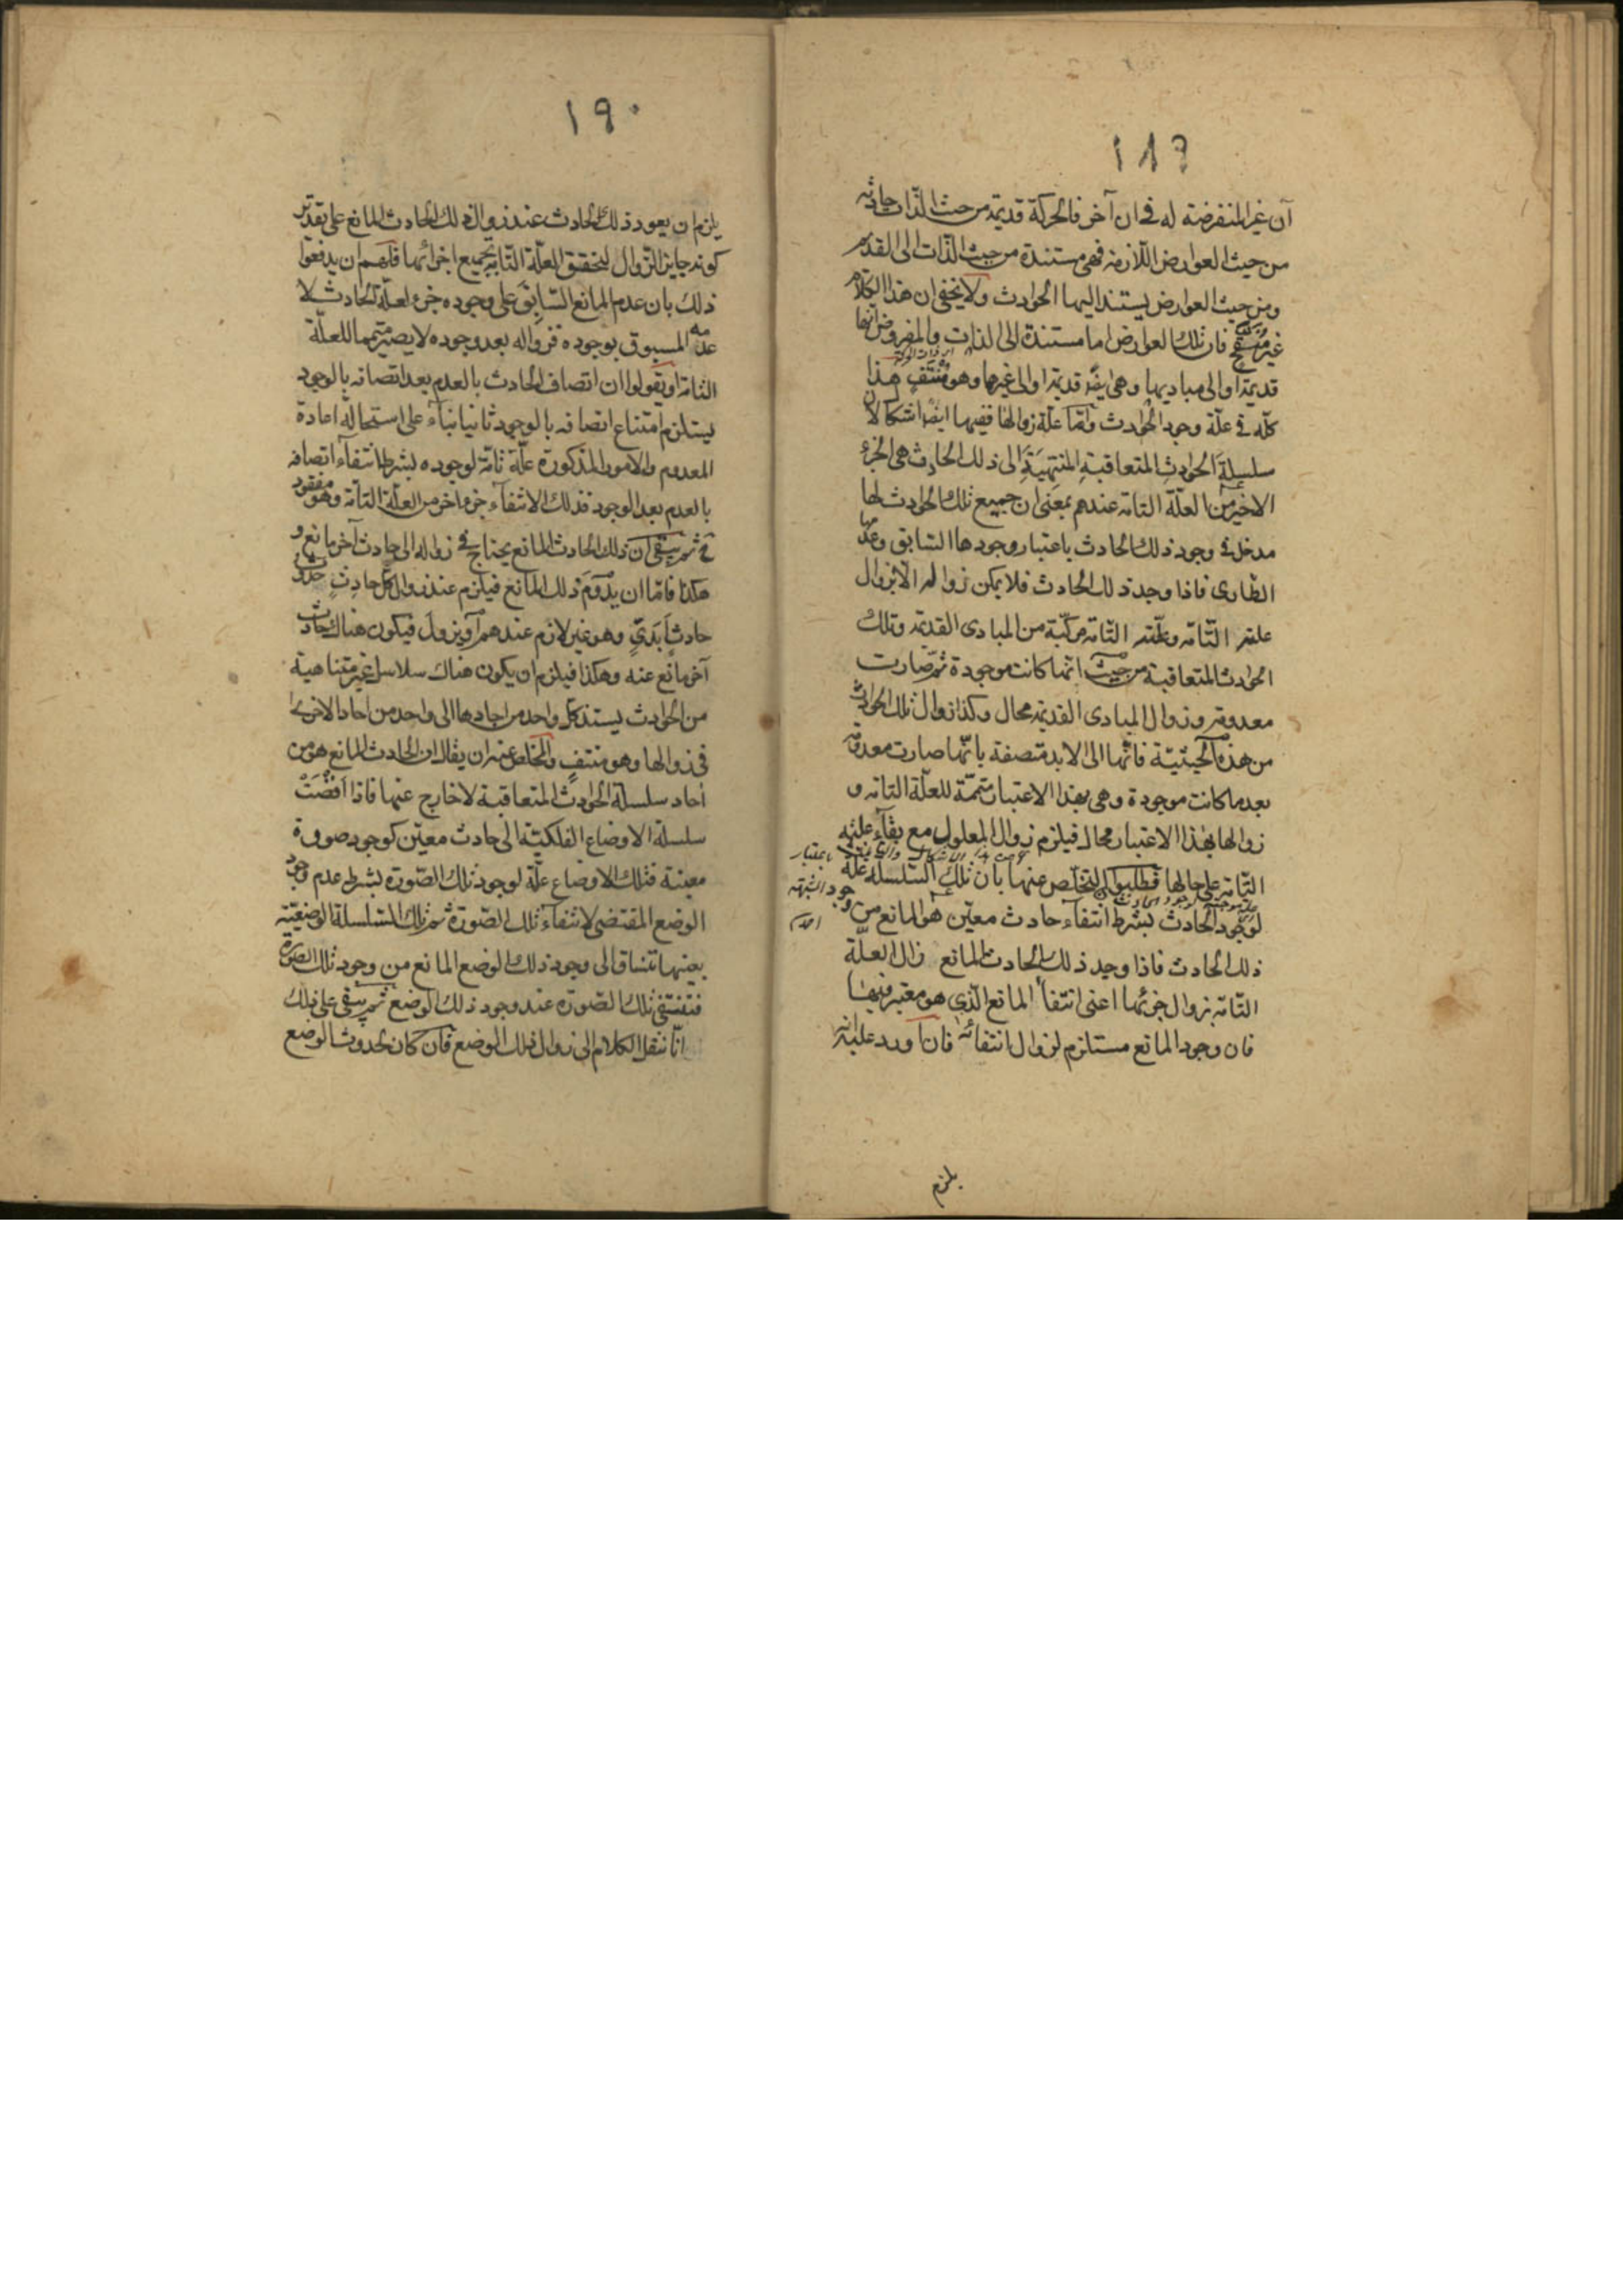 ١٨٩
آن غير المنفرضة له فى ان آخر فالحركة قديمة من حيث الذات حادثه
من حيث العوارض اللازمه فهى مستندة من حيث الذّات الى القديم
ومن حيث العوارض يستند اليها الحوادث ولا يخفى ان هذا الكلام
غير منقح فان تلك العوارض اما مستندة الى الذات والمفروض انها
قديمة او الى مباديها وهى ايضًا قديمة او الى غيرها وهو منتفٍ هذا
كلّه فى علّة وجود الحوادث وامّا علّة زوالها ففيها ايضًا اشكال لان
سلسلةَ الحوادثِ المتعاقبةِ المنتهيَةِ الى ذلك الحادث هى الجزء
الاخير من العلّة التامة عندهم بمعنى ان جميع تلك الحوادث لها
مدخل فى وجود ذلك الحادث باعتبار وجودها السّابق وعدمها
الطّارى فاذا وجد ذلك الحادث فلا يمكن زواله الّا بزوال
علته التّامّه وعلّته التّامّه مركّبة من المبادى القديمة وتلك
الحوادث المتعاقبة من حيث انّها كانت موجودة ثمّ صارت
معدومة وزوال المبادى القديمة محال وكذا زوال تلك الحوادث
من هذه الحيثيّة فانّها الى الابد متصفة بانّها صارت معدومة
بعد ما كانت موجودة وهى بهذا الاعتبار متمّمة للعلّة التامّه و
زوالها بهذا الاعتبار محال فيلزم زوال المعلول مع بقآء علته
التّامّة على حالها فطلبوا التخلّص عنها بان تلك السّلسله علّة
لوجود الحادث بشرط انتفاء حادث معيّن هو المانع من وجود
ذلك الحادث فاذا وجد ذلك الحادث المانع زال العلّة
التّامّة بزوال جزئها اعنى انتفآء المانع الّذى هو معتبر فيها
فان وجود المانع مستلزم لزوال انتفائه فان اورد عليه انه
يلزم
١٩٠
يلزم ان يعود ذلك الحادث عند زوال ذلك الحادث المانع على تقدير
كونه جايز الزّوال لتحقق العلّة التّامّة بجميع اجزائها فلهم ان يدفعوا
ذلك بان عدم المانع السّابق على وجوده جزء لعلّة الحادث لا
عدمه المسبوق بوجوده فزواله بعد وجوده لا يصير متمما للعلّة
التامّة او يقولوا ان اتصاف الحادث بالعدم بعد اتصافه بالوجود
يستلزم امتناع اتصافه بالوجود ثانيا بنآء على استحالة اعادة
المعدوم والامور المذكورة علّة تامّة لوجوده بشرط انتفآء اتصافه
بالعدم بعد الوجود فذلك الانتفآء جزء اخر من العلّة التامّة وهو مفقود
ثم يبقى ان ذلك الحادث المانع يحتاج فى زواله الى حادث آخر مانع و
هكذا فامّا ان يدُومَ ذلك المانع فيلزم عند زوال كلّ حادثٍ حدوث
حادثٍ ابَدىٍّ وهو غير لازم عندهم او يزول فيكون هناك حادث
آخر مانع عنه وهكذا فيلزم ان يكون هناك سلاسل غير متناهية
من الحوادث يستند كلّ واحد من احادها الى واحد من احاد الاخرى
فى زوالها وهو منتفٍ والمخلص عنه ان يقال ان الحادث المانع هو من
احاد سلسلة الحوادث المتعاقبة لا خارج عنها فاذا افضَتْ
سلسلة الاوضاع الفلكيّة الى حادث معيّن كوجود صورة
معينة فتلك الاوضاع علّة لوجود تلك الصّورة بشرط عدم وجود
الوضع المقتضى لانتفآء تلك الصّورة ثم تلك السّلسلة الوضعيّة
بعينها تنساق الى وجود ذلك الوضع المانع من وجود تلك الصورة
فتنتفى تلك الصّورة عند وجود ذلك الوضع ثم يبقى على ذلك
انّا ننقل الكلام الى زوال ذلك الوضع فان كان لحدوث الوضع